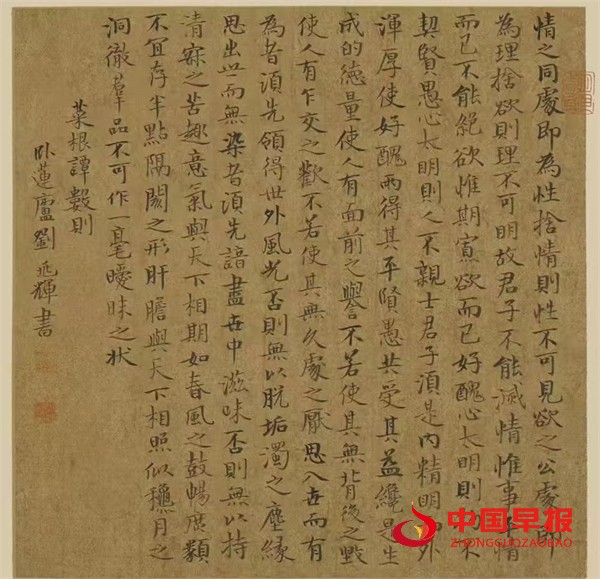 情之同處即為性捨情則性不可見欲之公處即
為理捨欲則理不可明故君子不能滅情惟事平情
而已不能絕欲惟期寡欲而已好醜心太明則物不
契賢愚心太明則人不親士君子須是內精明而外
渾厚使好醜兩得其平賢愚共受其益纔是生
成的德量使人有面前之譽不若使其無背後之毀
使人有乍交之歡不若使其無久處之厭思入世而有
為者須先領得世外風光否則無以脫垢濁之塵緣
思出世而無染者須先諳盡世中滋味否則無以持
清寂之苦趣意氣與天下相期如春風之鼓暢庶類
不宜存半點隔閡之形肝膽與天下相照似穐月之
洞徹羣品不可作一毫曖昧之狀
菜根譚數則
臥蓮廬劉兆輝書
中国早报
ZHONGGUOZAOBAO